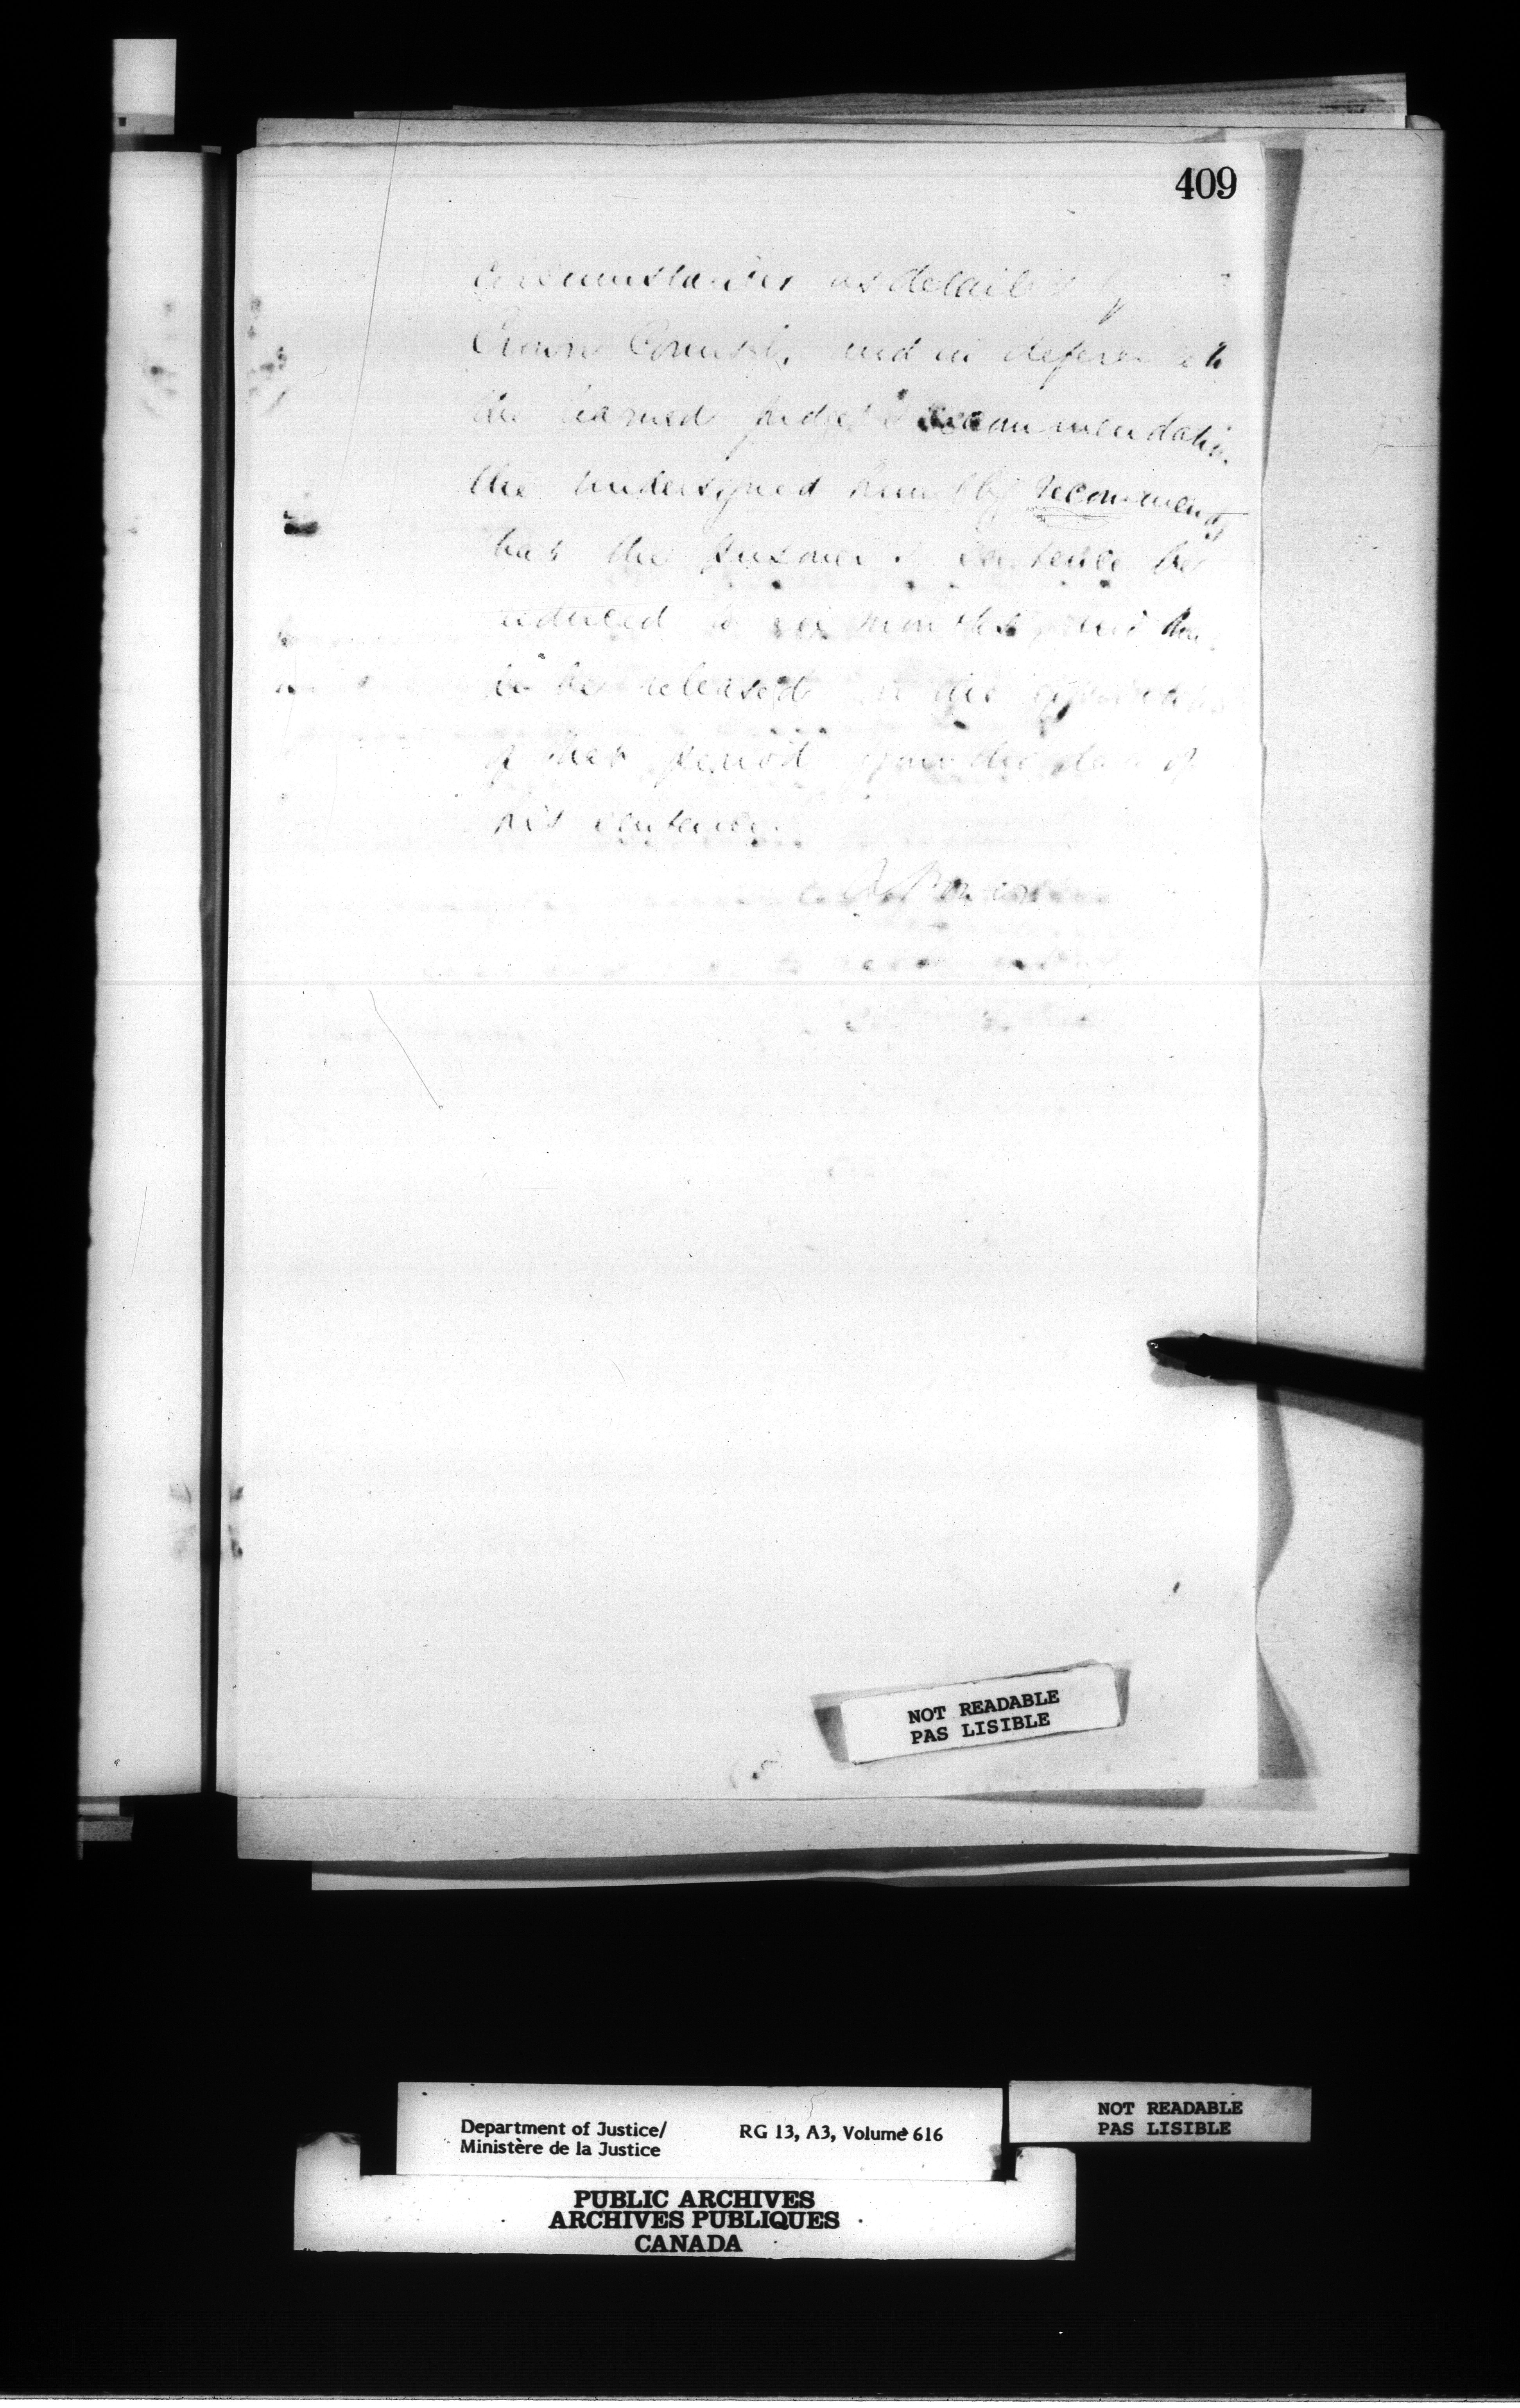 409
circumstances as detailed by
Crown Counsel, and in deference to
the learned judge's recommendation
the undersigned humbly recommends
that the prisoner's sentence be
reduced to six months, and he
to be released at the expiration
of that period from the date of
his sentence.
NOT READABLE
PAS LISIBLE
Department of Justice/
Ministère de la Justice
RG 13, A3, Volume 616
NOT READABLE
PAS LISIBLE
PUBLIC ARCHIVES
ARCHIVES PUBLIQUES
CANADA